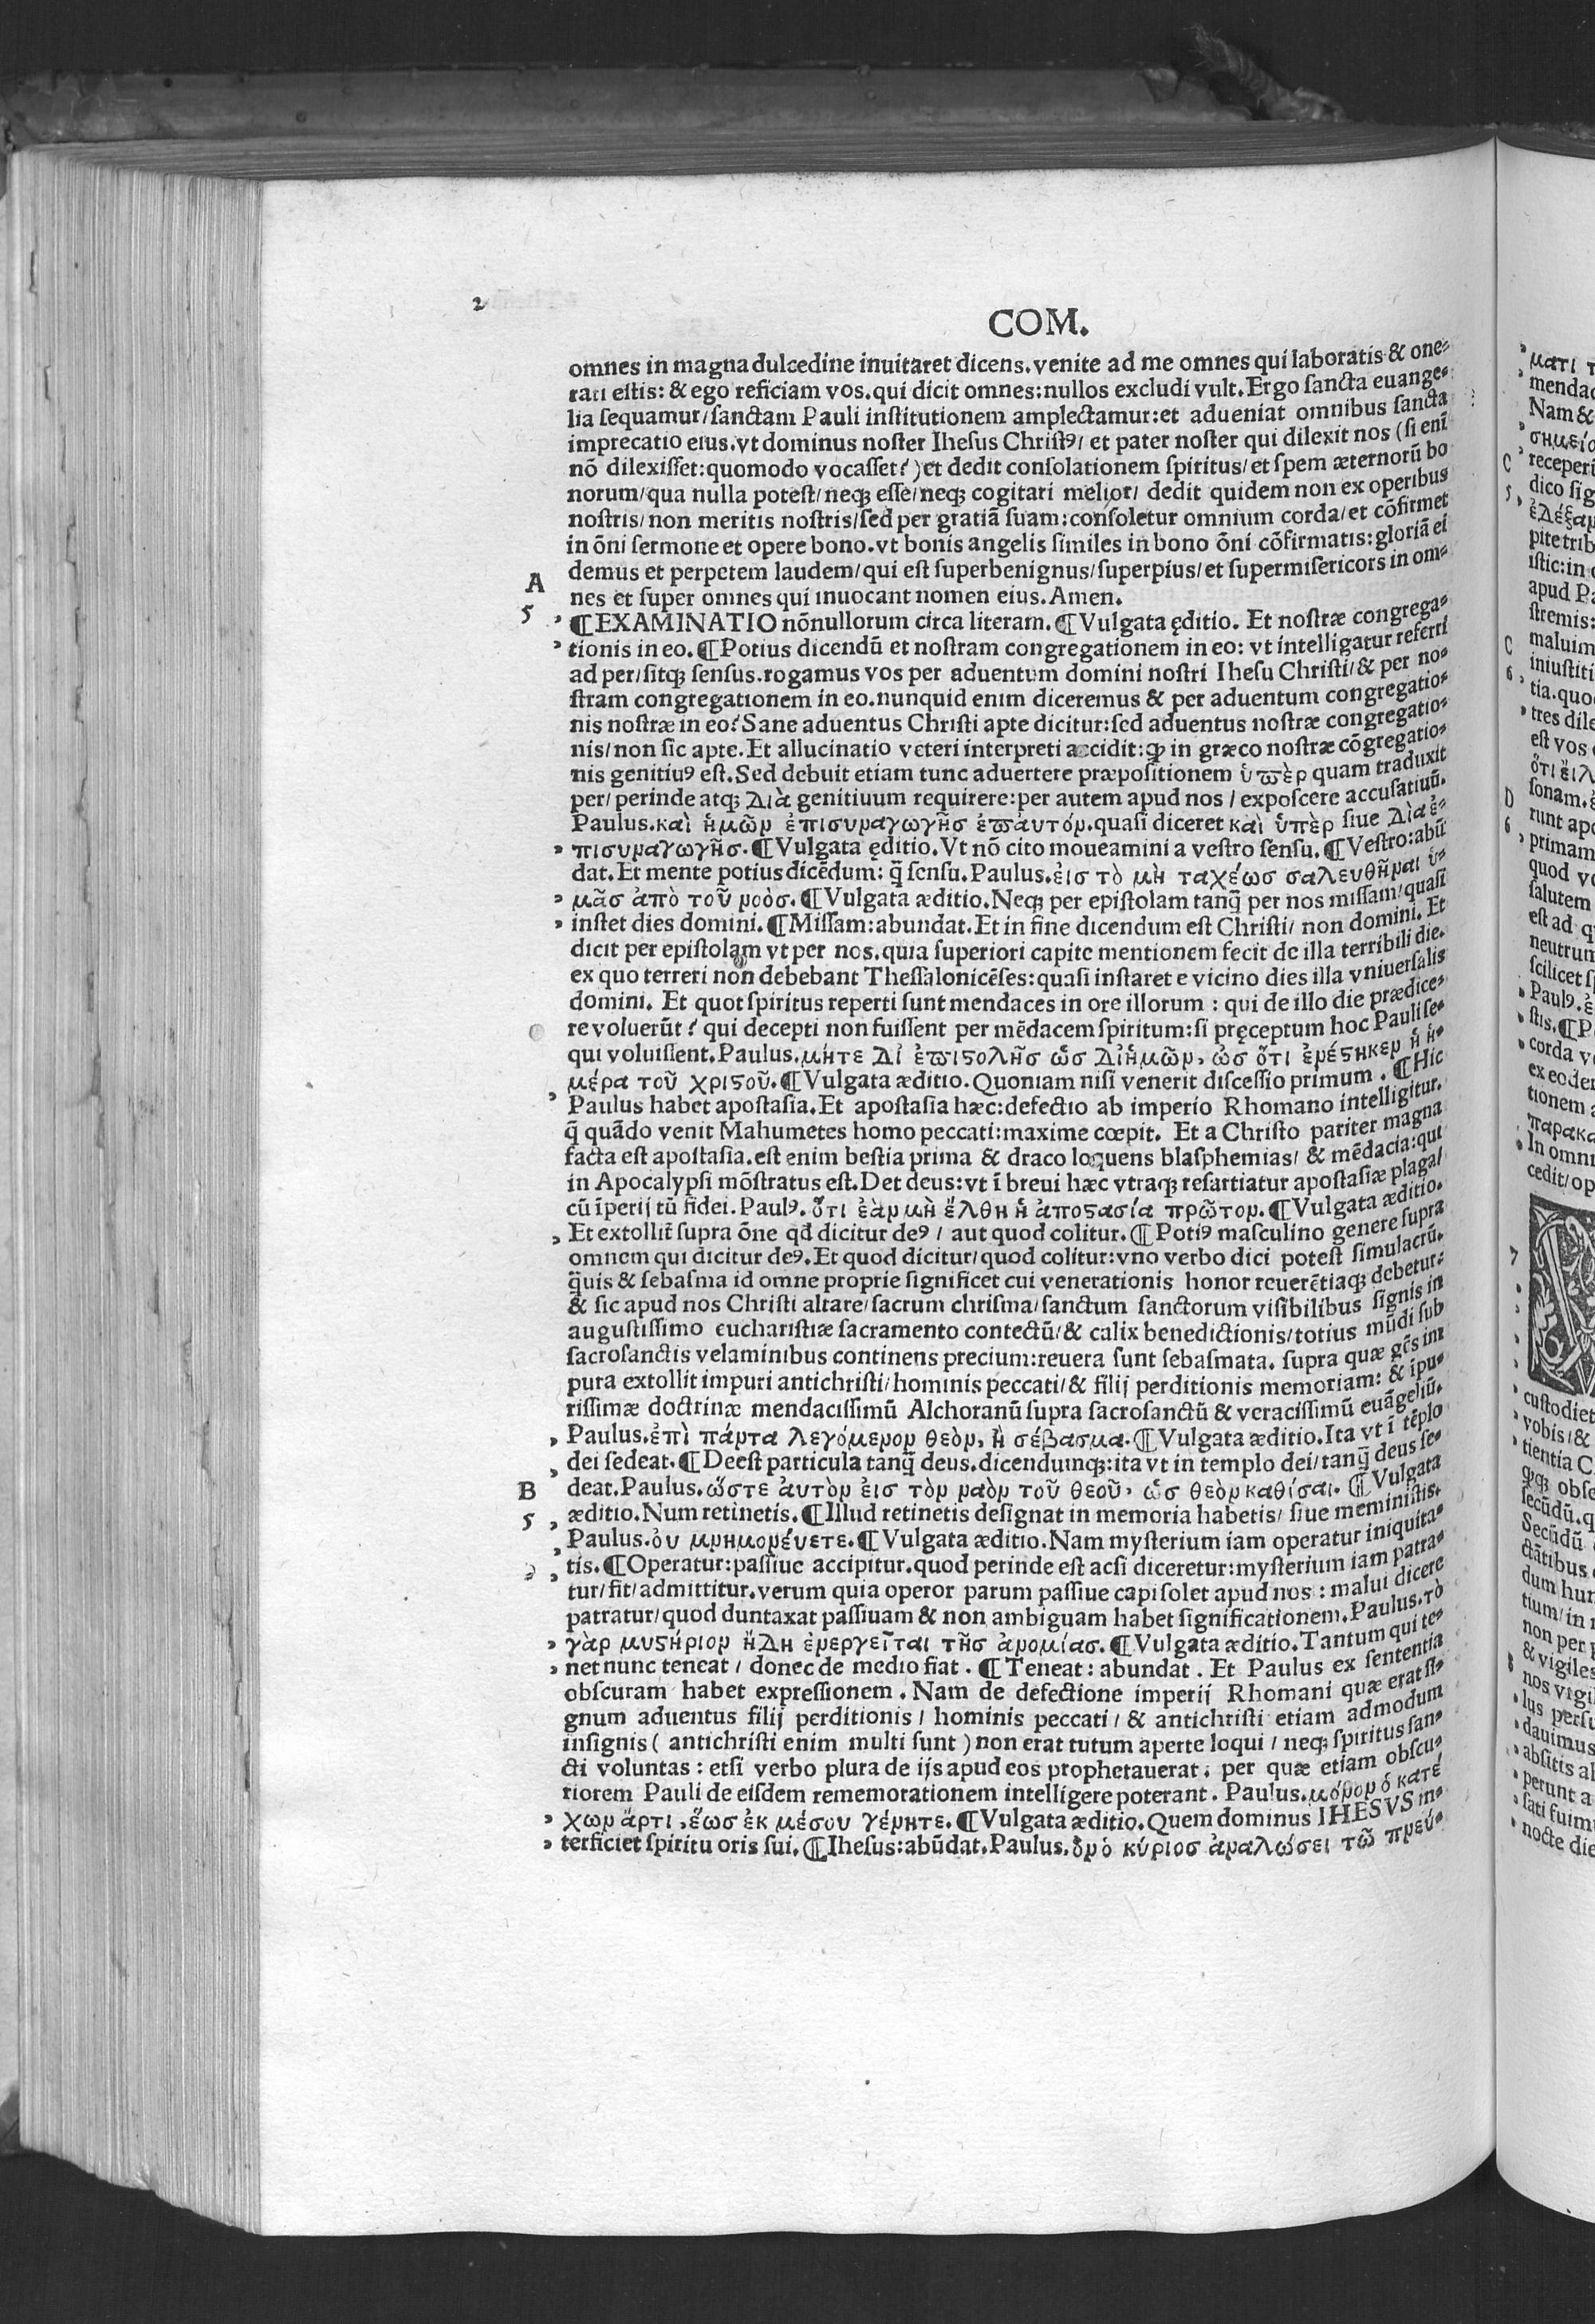 2
COM.
omnes in magna dulcedine inuitaret dicens. venite ad me omnes qui laboratis & one-
rati estis: & ego reficiam vos. qui dicit omnes: nullos excludi vult. Ergo sancta euange-
lia sequamur/ sanctam Pauli institutionem amplectamur: et adueniat omnibus sancta
imprecatio eius. vt dominus noster Ihesus Christꝰ/ et pater noster qui dilexit nos (si eni̅
nō dilexisset: quomodo vocasset?) et dedit consolationem spiritus/ et spem æternorū bo
norum/ qua nulla potest/ neqꝫ esse/ neqꝫ cogitari melior/ dedit quidem non ex operibus
nostris/ non meritis nostris/ sed per gratiā suam: consoletur omnium corda/ et cōfirmet
in ōni sermone et opere bono. vt bonis angelis similes in bono ōni cōfirmatis: gloriā ei
demus et perpetem laudem/ qui est superbenignus/ superpius/ et supermisericors in om-
A nes et super omnes qui inuocant nomen eius. Amen.
5 ¶ EXAMINATIO nōnullorum circa literam. ¶ Vulgata ęditio. Et nostræ congrega-
tionis in eo. ¶ Potius dicendū et nostram congregationem in eo: vt intelligatur referri
ad per/ sitqꝫ sensus. rogamus vos per aduentum domini nostri Ihesu Christi/ & per no-
stram congregationem in eo. nunquid enim diceremus & per aduentum congregatio-
nis nostræ in eo? Sane aduentus Christi apte dicitur: sed aduentus nostræ congregatio-
nis/ non sic apte. Et allucinatio veteri interpreti accidit: ꝙ in græco nostræ cōgregatio-
nis genitiuꝰ est. Sed debuit etiam tunc aduertere præpositionem ὑπὲρ quam traduxit
per/ perinde atqꝫ Διὰ genitiuum requirere: per autem apud nos / exposcere accusatiuū.
Paulus. καὶ ἡμῶν ἐπισυναγωγῆσ ἐπαυτόν. quasi diceret καὶ ὑπὲρ siue Διὰ ἐ-
πισυναγωγῆσ. ¶ Vulgata ęditio. Vt nō cito moueamini a vestro sensu. ¶ Vestro: abū
dat. Et mente potius dicēdum: q̄̃ sensu. Paulus. ἐισ τὸ μὴ ταχέωσ σαλευθῆναι ὑ-
μᾶσ ἀπὸ τοῦ νοὸσ. ¶ Vulgata æditio. Neqꝫ per epistolam tanq̄̃ per nos missam/ quasi
instet dies domini. ¶ Missam: abundat. Et in fine dicendum est Christi/ non domini. Et
dicit per epistolam vt per nos. quia superiori capite mentionem fecit de illa terribili die.
ex quo terreri non debebant Thessalonicēses: quasi instaret e vicino dies illa vniuersalis
domini. Et quot spiritus reperti sunt mendaces in ore illorum : qui de illo die prædice-
re voluerūt? qui decepti non fuissent per mēdacem spiritum: si pręceptum hoc Pauli se-
qui voluissent. Paulus. μήτε Δἰ ἐπιϛολῆσ ὡσ Δἰἡμῶν, ὡσ ὅτι ἐνέϛηκεν ἡ ἡ-
μέρα τοῦ χριϛοῦ. ¶ Vulgata æditio. Quoniam nisi venerit discessio primum . ¶ Hic
Paulus habet apostasia. Et apostasia hæc: defectio ab imperio Rhomano intelligitur.
q̄̃ quādo venit Mahumetes homo peccati: maxime cœpit. Et a Christo pariter magna
facta est apostasia. est enim bestia prima & draco loquens blasphemias/ & mēdacia: qui
in Apocalypsi mōstratus est. Det deus: vt ī breui hæc vtraqꝫ resartiatur apostasiæ plaga/
cū īperij tū fidei. Paulꝰ. ὅτι ἐὰν μὴ ἔλθη ἡ ἀποϛασία πρῶτον. ¶ Vulgata æditio.
Et extollit̄ supra ōne qd̄ dicitur deꝰ / aut quod colitur. ¶ Potiꝰ masculino genere supra
omnem qui dicitur deꝰ. Et quod dicitur/ quod colitur: vno verbo dici potest simulacrū.
q̄̃uis & sebasma id omne proprie significet cui venerationis honor reuerētiaqꝫ debetur:
& sic apud nos Christi altare/ sacrum chrisma/ sanctum sanctorum visibilibus signis in
augustissimo eucharistiæ sacramento contectū/ & calix benedictionis/ totius mūdi sub
sacrosanctis velaminibus continens precium: reuera sunt sebasmata. supra quæ gēs im
pura extollit impuri antichristi/ hominis peccati/ & filij perditionis memoriam: & īpu-
rissimæ doctrinæ mendacissimū Alchoranū supra sacrosanctū & veracissimū euāgeliū.
Paulus. ἐπὶ πάντα λεγόμενον θεὸν, ἢ σέβασμα. ¶ Vulgata æditio. Ita vt ī tēplo
dei sedeat. ¶ Deest particula tanq̄̃ deus. dicendumqꝫ: ita vt in templo dei/ tanq̄̃ deus se-
B deat. Paulus. ὥστε ἀυτὸν ἐισ τὸν ναὸν τοῦ θεοῦ, ὡσ θεὸν καθίσαι. ¶ Vulgata
5 æditio. Num retinetis. ¶ Illud retinetis designat in memoria habetis/ siue meministis.
Paulus. ὀυ μνημονέυετε. ¶ Vulgata æditio. Nam mysterium iam operatur iniquita-
tis. ¶ Operatur: passiue accipitur. quod perinde est acsi diceretur: mysterium iam patra-
tur/ fit/ admittitur. verum quia operor parum passiue capi solet apud nos : malui dicere
patratur/ quod duntaxat passiuam & non ambiguam habet significationem. Paulus. τὸ
γὰρ μυϛήριον ἤΔη ἐνεργεῖται τῆσ ἀνομίασ. ¶ Vulgata æditio. Tantum qui te-
net nunc teneat / donec de medio fiat . ¶ Teneat: abundat . Et Paulus ex sententia
obscuram habet expressionem . Nam de defectione imperij Rhomani quæ erat si-
gnum aduentus filij perditionis / hominis peccati / & antichristi etiam admodum
insignis ( antichristi enim multi sunt ) non erat tutum aperte loqui / neqꝫ spiritus san-
cti voluntas : etsi verbo plura de ijs apud eos prophetauerat: per quæ etiam obscu-
riorem Pauli de eisdem rememorationem intelligere poterant . Paulus. μόνον ὁ κατέ
χων ἄρτι, ἕωσ ἐκ μέσου γένητε. ¶ Vulgata æditio. Quem dominus IHESVS in-
terficiet spiritu oris sui. ¶ Ihesus: abūdat. Paulus. ὃν ὁ κύριοσ ἀναλώσει τῶ πνεύ-